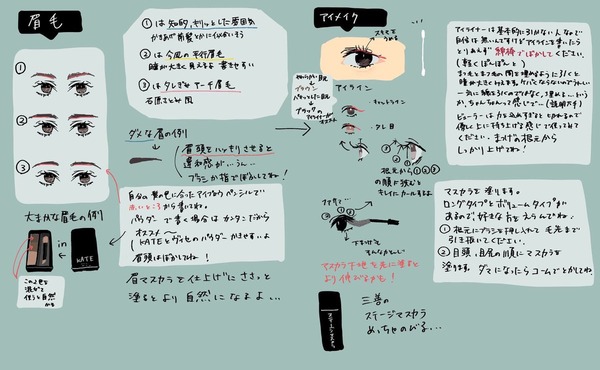 眉毛
①
②
③
大まかな眉毛の例
in
KATE
この2色を
混ぜて
使うと自然
かも
①は知的、キリッとした雰囲気
②は今風の平行眉毛
瞳が大きく見えるよ 書きやすい
③はタレぎみアーチ眉毛
石原さとみ風
ダメな眉の例
眉頭をハッキリさせると
違和感が…うん…
ブラシか指でぼかしてね!
自分の髪の色に合ったアイブロウペンシルで
赤いところから書いてね。
パウダーで書く場合はカンタンだから
オススメ〜
眉頭はぼかしてね!
眉マスカラを仕上げにささっと
塗るとより自然になるよ…
アイメイク
スキマを
うめる
ブラウン
ブラックの
アイライナーが
オススメ
アイライン
キャットライン
タレ目
①
②
③
根元から①②③
の順に挟むと
キレイにカールするよ
下まつげも
そんなかんじ
マスカラ下地を先に塗ると
より伸びるかも!
三善の
ステージマスカラ
めっちゃのびる…
アイライナーは基本的に引かない人なので
とりあえず綿棒でぼかしてください。
(軽くぽーんぽーんと)
まつ毛とまつ毛の間を埋めるように引くと
ビューラーは力を込めすぎると切れるので
優しく上に持ち上げる感じで使ってみて
ください。まつげの根元から
しっかり上げてね!
マスカラを塗ります。
ロングタイプとボリュームタイプが
あるので、好きな方をえらんでね。
①根元にブラシを押し入れて毛先まで
引き抜いてください。
②目頭、目尻の順にマスカラを
塗ります。ダマになったらコームでとかしてね。